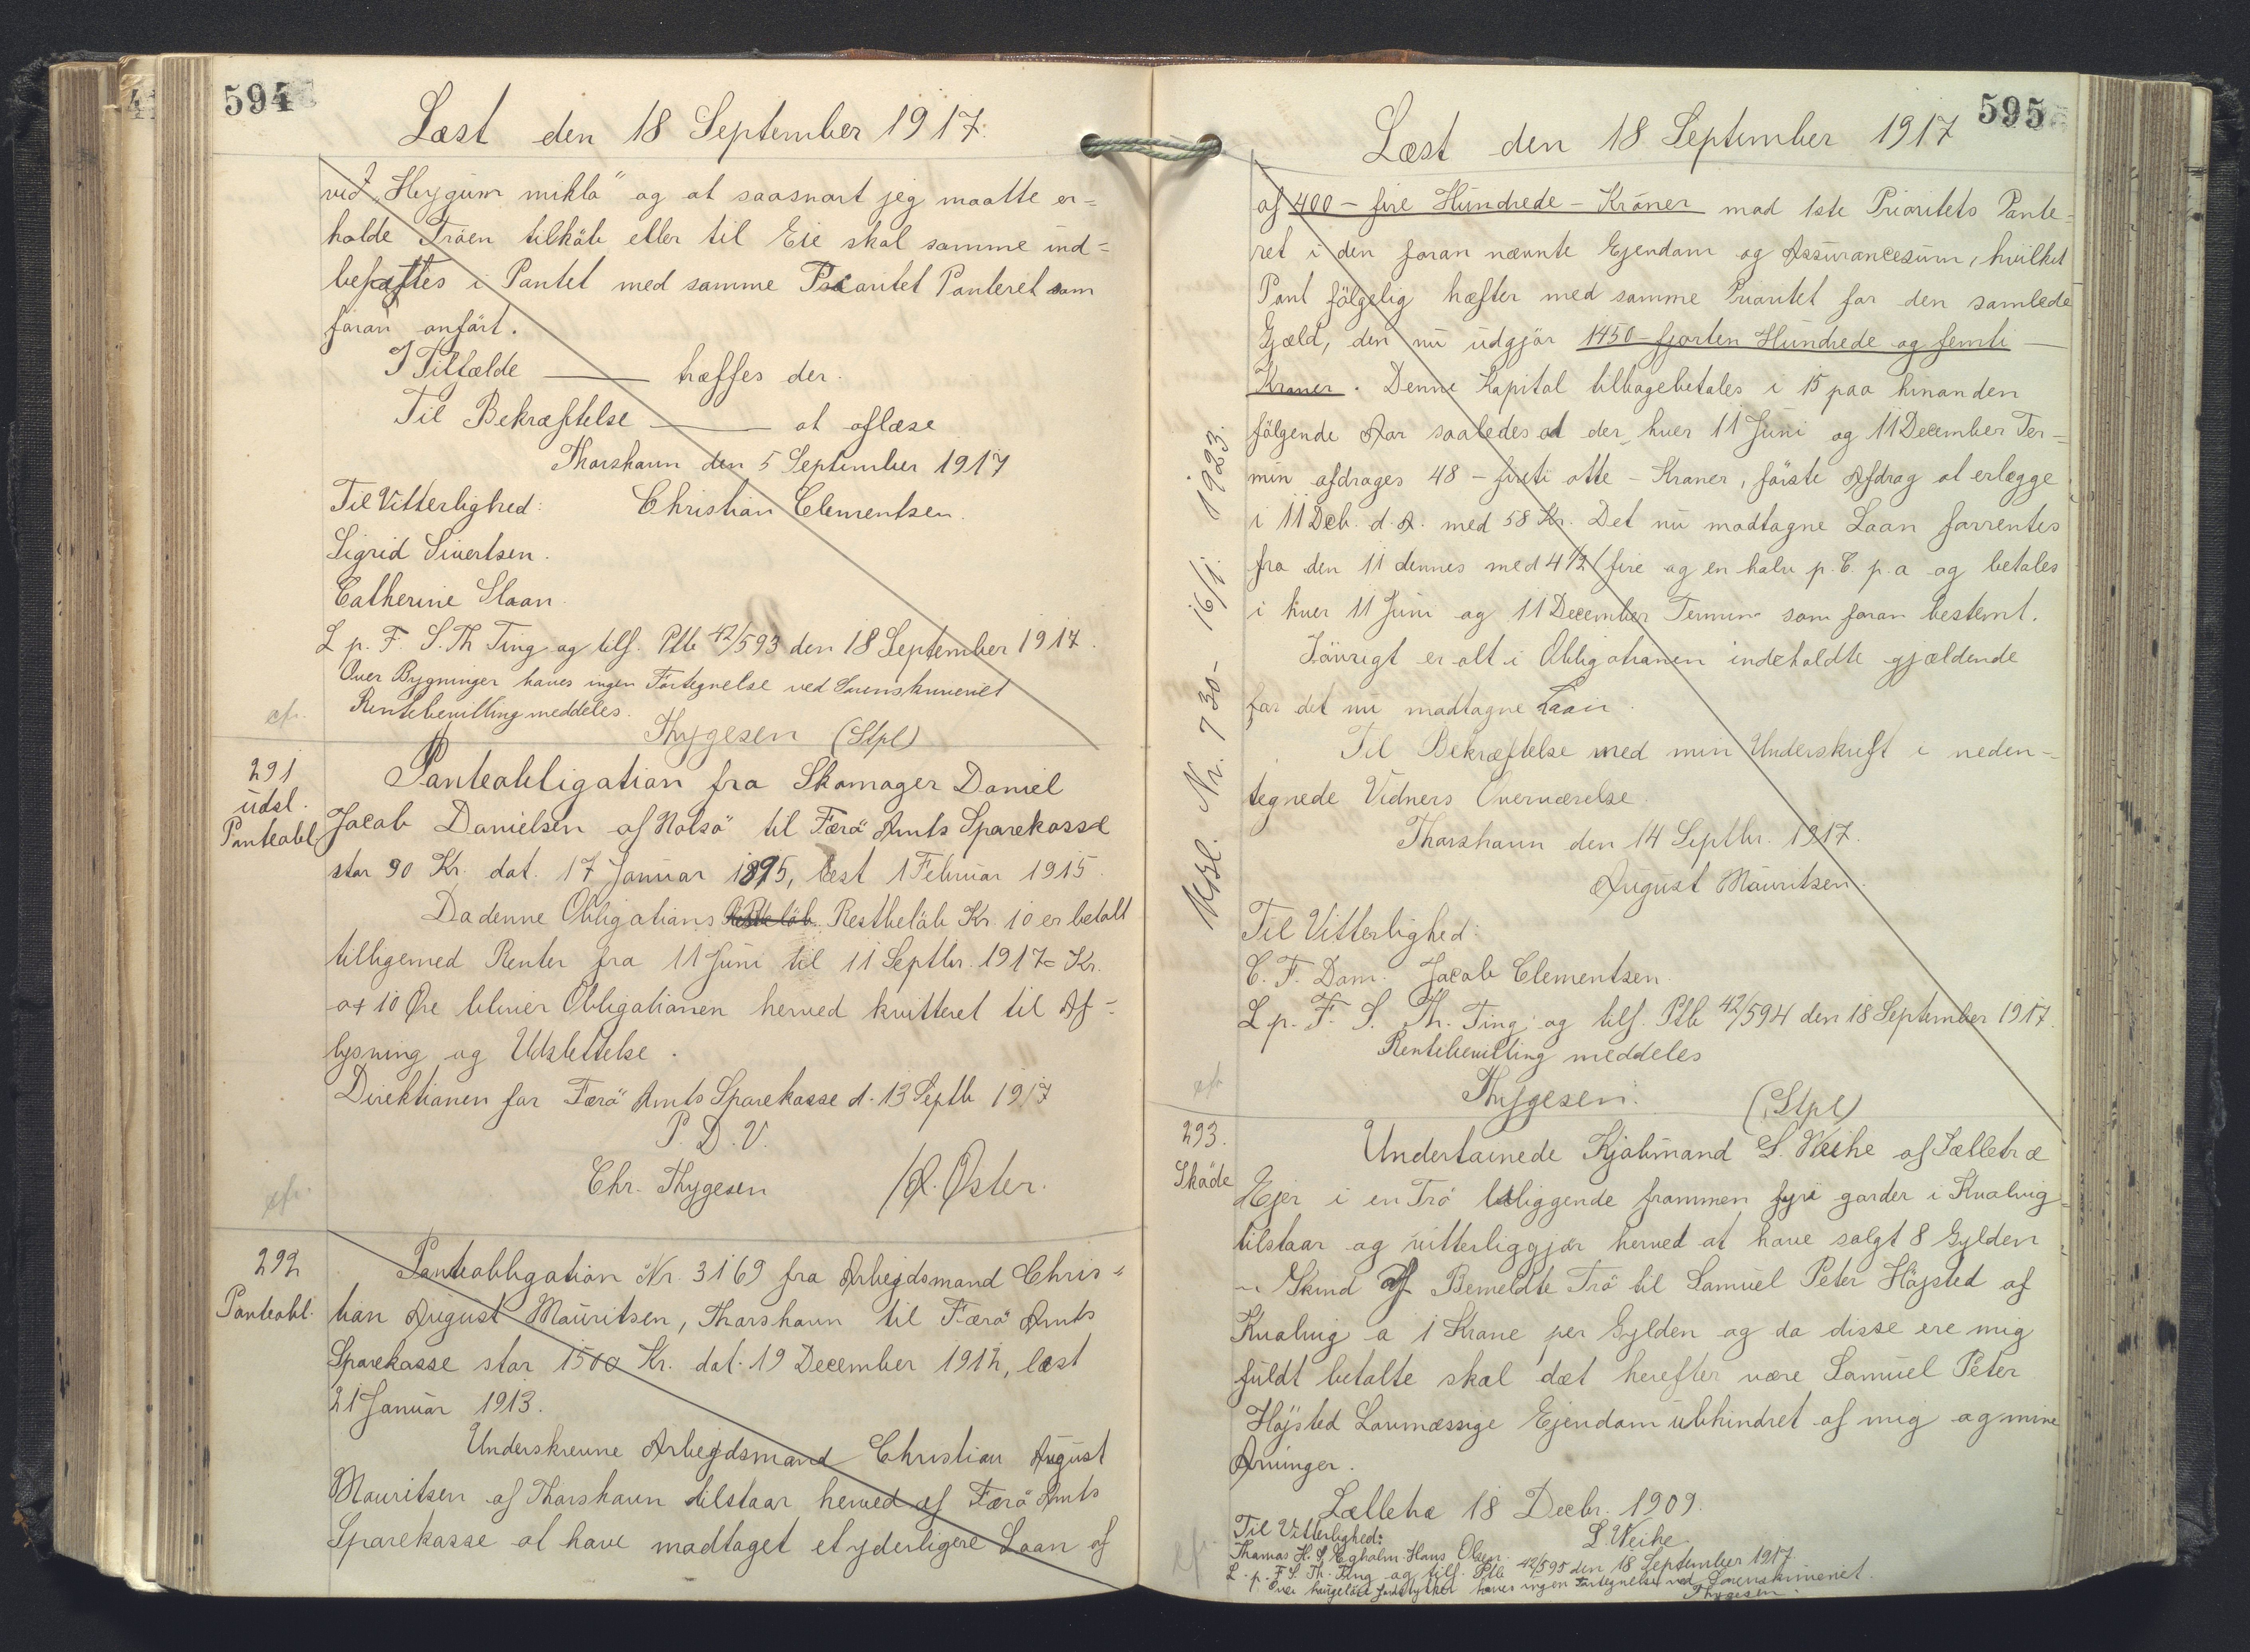 594
Læst den 18 September 1917.
ved "Heygum mikla" og at saasnart jeg maatte er=
holde Tröen tilköb eller til Eie skal samme ind=
befattes i Pantet med samme Prioritet Panteret som
foran anfört.
I Tilfælde —— hæffes der.
Til Bekræftelse —— at aflæse
Thorshavn den 5 September 1917
Til Vitterlighed: Christian Clementsen.
Sigrid Sivertsen.
Catherine Slaan.
L p. F. S. Th Ting og tilf. Ptb 42/593 den 18 September 1917.
Over Bygninger haves ingen Fortegnelse ved Sorenskriveriet
Rentebevilling meddeles.
cfr. Thygesen (Stpl)
291
udsl.
Panteobl
Panteobligation fra Skomager Daniel
Jacob Danielsen af Nolsö til Færö Amts Sparekasse
stor 90 Kr. dat. 17 Januar 1895, læst 1 Februar 1915.
Da denne Obligations Restbelöb Kr. 10 er betalt
tilligemed Renter fra 11 Juni til 11 Septbr. 1917 = Kr.
0+10 Øre bliver Obligationen herved kvitteret til Af=
lysning og Udslettelse.
Direktionen for Færö Amts Sparekasse d. 13 Septb 1917
P. D. V.
Chr. Thygesen /O. Øster.
cfr.
292
Panteobl.
Panteobligation Nr. 3169 fra Arbejdsmand Chris=
tian August Mauritsen, Thorshavn til Færö Amts
Sparekasse stor 1500 Kr. dat. 19 December 1912, læst
21 Januar 1913.
Underskrevne Arbejdsmand Christian August
Mauritsen af Thorshavn tilstaar herved af Færö Amts
Sparekasse at have modtaget et yderligere Laan af
595
Læst den 18 September 1917
af 400 – fire Hundrede – Kroner mod 1ste Prioritets Pante=
ret i den foran nævnte Ejendom og Assurancesum, hvilket
Pant fölgelig hæfter med samme Prioritet for den samlede
Gjæld, den nu udgjör 1450 – fjorten Hundrede og femti —
Kroner. Denne Kapital tilbagebetales i 15 paa hinanden
fölgende Aar saaledes at der hver 11 Juni og 11 December Ter=
min afdrages 48 – fireti otte – Kroner, förste Afdrag at erlægge
i 11 Dcb. d. A. med 58 Kr. Det nu modtagne Laan forrentes
fra den 11 dennes med 4 1/2 / fire og en halv p. C. p. a og betales
i hver 11 Juni og 11 December Termin som foran bestemt.
Iövrigt er alt i Obligationen indeholdte gjældende
for det nu modtagne Laan.
Til Bekræftelse med min Underskrift i neden=
tegnede Vidners Overværelse.
Thorshavn den 14 Septbr. 1917.
August Mauritsen.
Til Vitterlighed:
C. F. Dam. Jacob Clementsen.
L p. F. S. Th. Ting og tilf. Ptb 42/594 den 18 September 1917.
Rentebevilling meddeles
cfr Thygesen. (Stpl)
Udsl. Nr. 730 – 16/1. 1923.
293.
Sköde
Undertainede Kjöbmand S. Weihe af Sælletræ
Ejer i en Trö beliggende frammen fyri garder i Kvalvig
tilstaar og vitterliggjør herved at have solgt 8 Gylden
~ Skind af Bemeldte Trö til Samuel Peter Höjsted af
Kvalvig a 1 Krone per Gylden og da disse ere mig
fuldt betalte skal dæt herefter være Samuel Peter
Höjsted Lovmæssige Ejendom ubhindret af mig og mine
Arvinger.
Sælletræ 18 Decbr. 1909.
Til Vitterlighed: S Weihe
Thomas H. S. Egholm. Hans Olsen.
L. p. F. S. Th. Ting og tilf. Ptb 42/595 den 18 September 1917
Over haugelöse Jordstykker haves ingen Fortegnelse ved Sorenskriveriet.
cfr Thygesen.